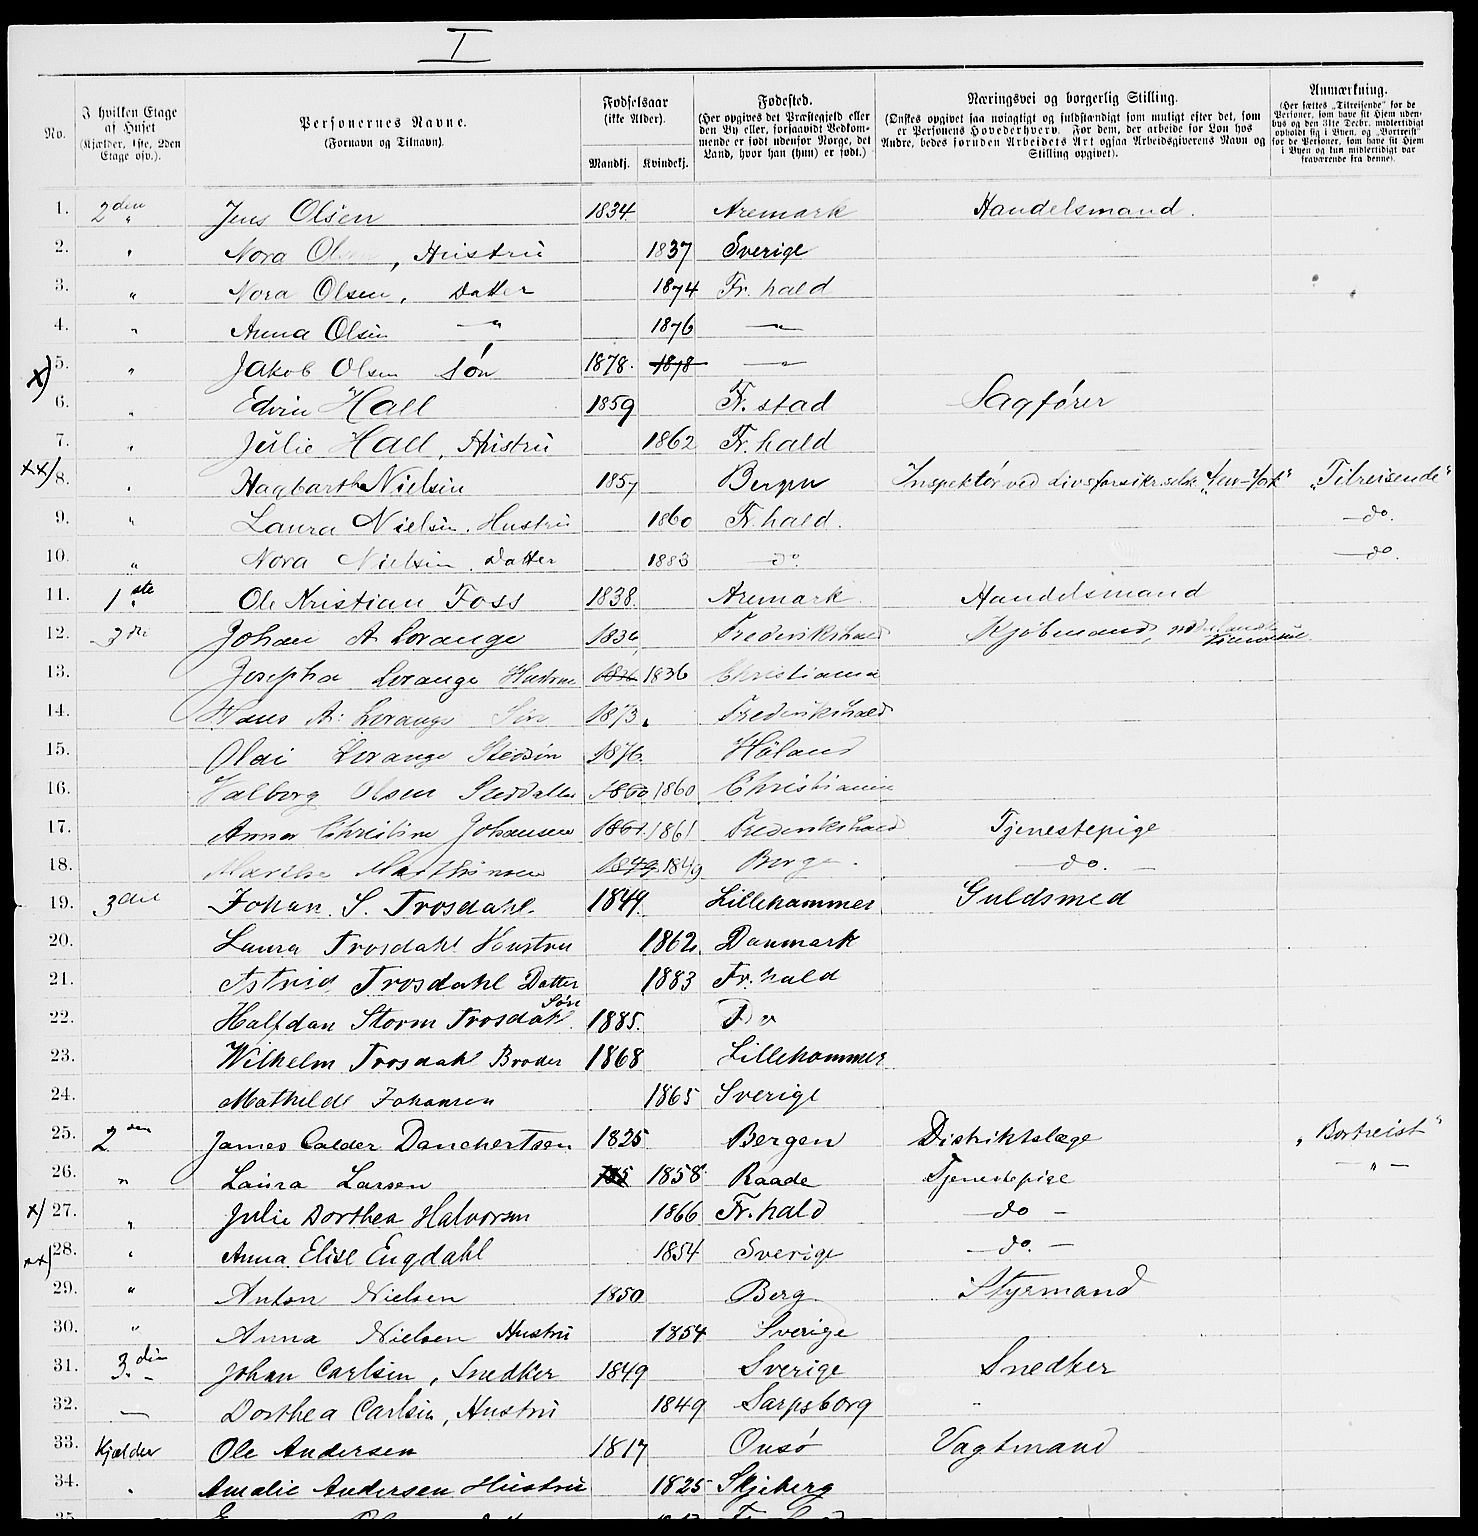 I
No. I hvilken Etage af Huset (Kjælder, 1ste, 2den Etage osv.). Personernes Navne. (Fornavn og Tilnavn). Fødselsaar (ikke Alder). Mandkj. Kvindekj. Fødested. (Her opgives det Præstegjeld eller den By eller, forsaavidt Vedkommende er født udenfor Norge, det Land, hvor han (hun) er født.) Næringsvei og borgerlig Stilling. (Ønskes opgivet saa nøiagtigt og fuldstændigt som muligt efter det, som er Personens Hovederhverv. For dem, der arbeide for Løn hos Andre, bedes foruden Arbeidets Art ogsaa Arbeidsgiverens Navn og Stilling opgivet). Anmærkning. (Her sættes „Tilreisende" for de Personer, som have sit Hjem udenbys og den 31te Decbr. midlertidigt opholdt sig i Byen, og „Bortreist" for de Personer, som have sit Hjem i Byen og kun midlertidigt var fraværende fra denne).
1. 2den " Jens Olsen 1834 Aremark Handelsmand.
2. " Nora Olsen, Hustru 1837 Sverige
3. " Nora Olsen, Datter 1874 Fr.hald
4. " Anna Olsen —"— 1876 —"—
x) 5. " Jakob Olsen Søn 1878. 1878 —"—
6. " Edvin Hall 1859 Fr.stad Sagfører
7. " Julie Hall, Hustru 1862 Fr.hald
xx) 8. " Hagbarth Nielsen 1857 Bergen Inspektør ved Livsforsikr.selsk. „New-York" „Tilreisende"
9. " Laura Nielsen, Hustru 1860 Fr.hald. —do.
10. " Nora Nielsen, Datter 1883 —do. —do.
11. 1ste " Ole Kristian Foss 1838. Aremark. Handelsmand
12. 3die Johan A. Lorange 1836 Frederikshald Kjøbmand,
13. Josepha Lorange Hustrue 1836 1836 Christiania
14. Hans A: Lorange Søn 1873. Frederikshald
15. Olai Lorange Stedsøn 1876. Høland
16. Valborg Olsen Steddatter 1860 1860 Christiania
17. Anna Christine Johansen 1861. 1861 Frederikshald Tjenestepige
18. Marthe Marthinsen 1849 1849 Berg. —do.—
19. 3die Johan. S. Trosdahl. 1849. Lillehammer Guldsmed
20. Laura Trosdahl Houstru 1862. Danmark
21. Astrid Trosdahl Datter 1883 Fr.hald
22. Halfdan Storm Trosdahl Søn 1885. Do
23. Wilhelm Trosdahl Broder 1868 Lillehammer
24. Mathilde Johansen 1865 Sverige
25. 2den James Calder Danchertsen 1825 Bergen Distriktslæge „Bortreist"
26. " Laura Larsen 1858. Raade Tjenestepige —"—
x) 27. " Julie Dorthea Halvorsen 1866 Fr.hald —do—
xx) 28. " Anna Elise Engdahl 1854 Sverige —do.—
29. " Anton Nielsen 1850 Berg. Styrmand
30. " Anna Nielsen Hustru 1854 Sverige
31. 3.die— Johan Carlsen, Snedker 1849 Sverige Snedker
32. — Dorthea Carlsen, Hustru 1849 Sarpsborg "
33. Kjælder Ole Andersen 1817 Onsø Vagtmand
34. " Amalie Andersen Hustru 1825 Skjeberg
35.